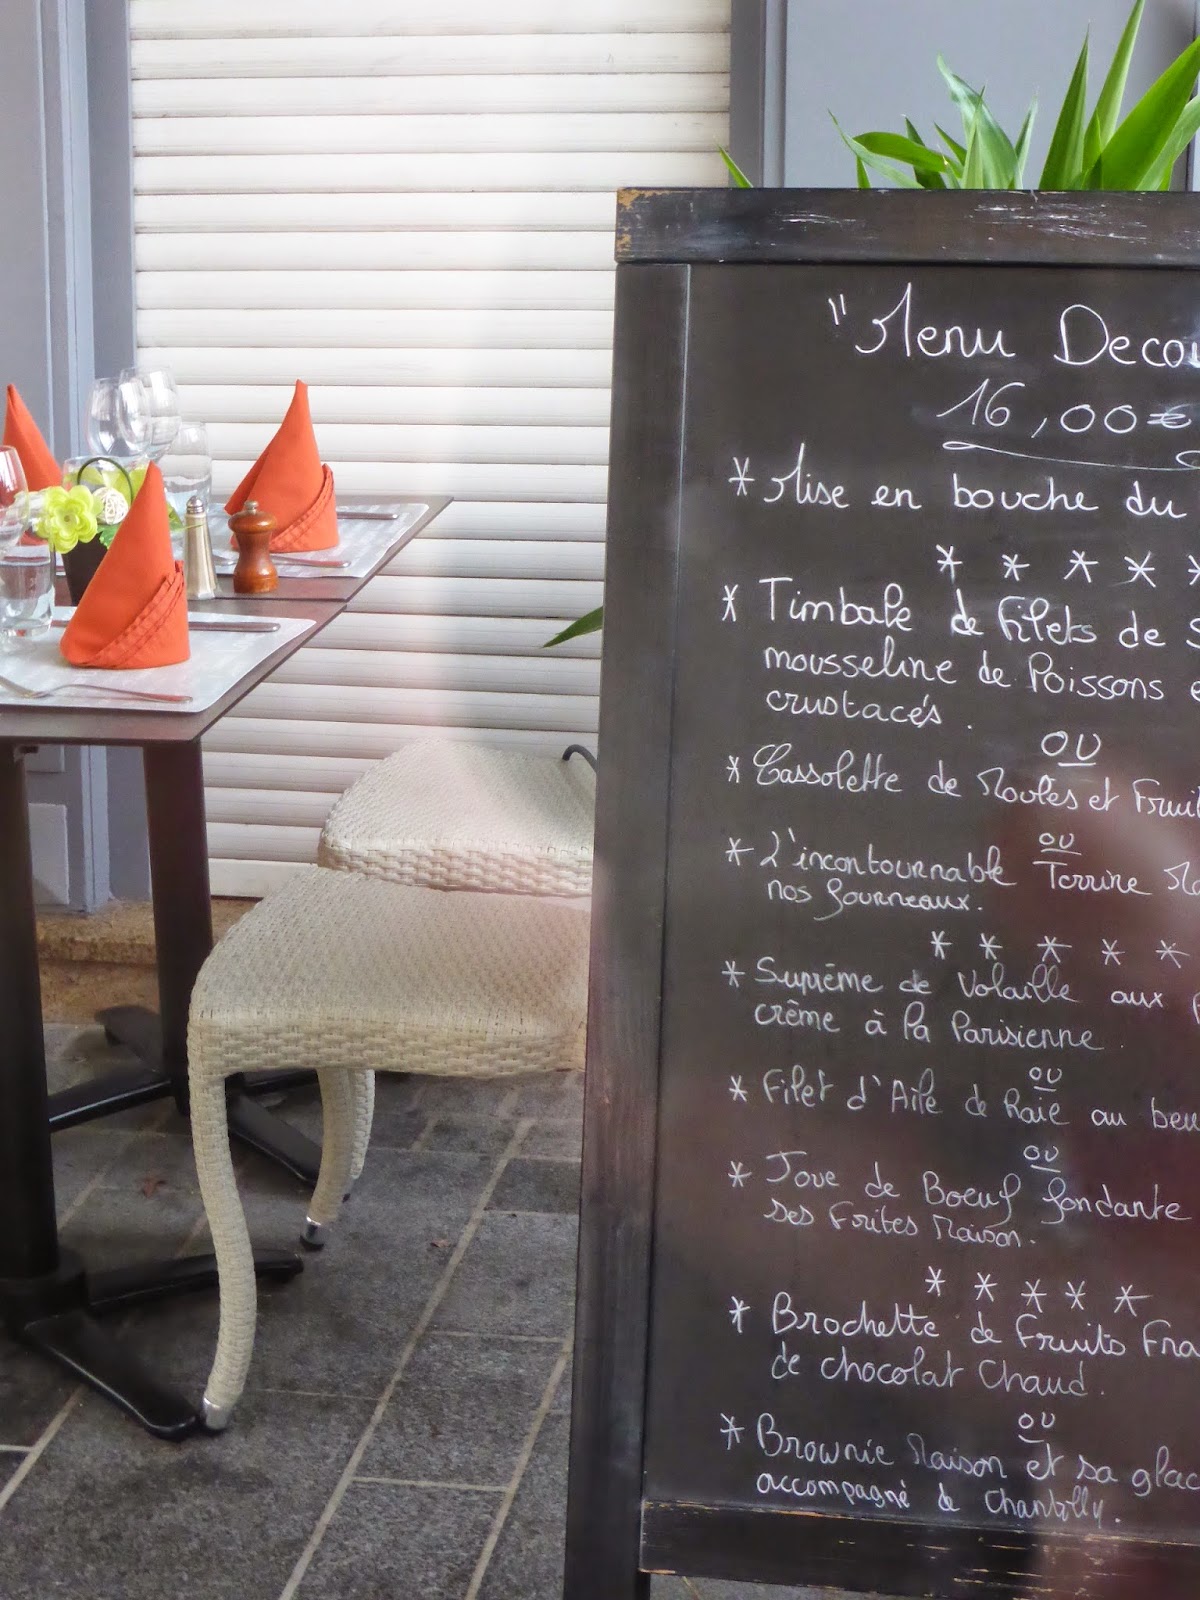 "Menu
16,00€
* Mise en bouche du
* * * * *
* Timbale de Filets de
mousseline de Poissons
crustacés.
OU
* Cassolette de Moules et
OU
* L'incontournable Terrine
nos fourneaux.
* * * * *
* Suprême de Volaille aux
crème à la Parisienne.
OU
* Filet d'Aile de Raie au
OU
* Joue de Boeuf fondante
ses Frites Maison.
* * * * *
* Brochette de Fruits
de chocolat Chaud.
OU
* Brownie Maison et sa
accompagné de Chantilly.